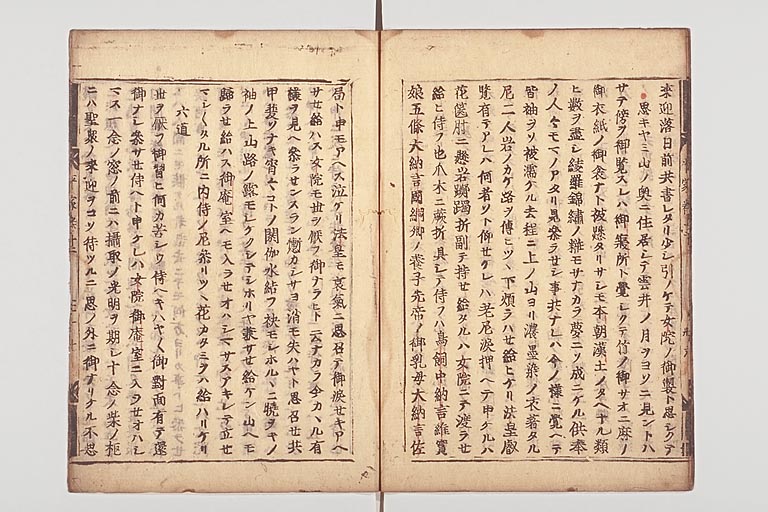 来迎落日前共書レタリ少シ引ノケテ女院ノ御製ト思シクテ
思モヤミ山ノ奥ニ住居シテ雲井ノ月ヲヨソニ見ントハ
サテ傍ヲ御覧スレハ御寝所ト覚シクテ竹ノ御サオニ麻ノ
御衣紙ノ御衾ナト被懸タリサシモ本朝漢土ノタヘナル類
ヒ数ヲ尽シ綾羅錦繍ノ粧モサナカラ夢ニソ成ニケル供奉
ノ人々モマノアタリ見参ラセシ事共ナレハ今ノ様ニ覚ヘテ
皆袖ヲソ被濡ケル去程ニ上ノ山ヨリ濃墨染ノ衣着タル
尼二人岩ノカケ路ヲ傳ヒツヽ下煩ラハセ給ヒケリ法皇叡
覧有テアレハ何者ソト仰セケレハ老尼涙押ヘテ申ケルハ
花筐肘ニ懸岩躑躅折副テ持セ給タルハ女院ニテ渡ラセ
給ヒ侍フ也爪木ニ蕨折具シテ侍フハ鳥飼中納言維實
娘五條大納言國綱卿ノ養子先帝ノ御乳母大納言佐
局ト申モアヘス泣ケリ法皇モ哀氣ニ思召テ御涙セキアヘ
サセ給ハス女院モ世ヲ厭フ御ナラヒト云ナカラ今カヽル有
様ヲ見ヘ参ラセンスラン慚カシサヨ消モ失ハヤト思召セ共
甲斐ソナキ宵々コトノ閼伽水結フ袂モシホルヽニ暁ヲキノ
袖ノ上山路ノ露モシケクシテシホリヤ兼サセ給ケン山ヘモ
歸ラセ給ハス御庵室ヘモ入ラセオハシマサスアキレテ立セ
マシ〳〵タル所ニ内侍ノ尼参リツヽ花カタミヲハ給ハリケリ
六道
世ヲ厭フ御習ヒ何カ苦シウ侍ヘキハヤ〳〵御對面有テ還
御ナシ参サセ侍ヘト申ケレハ女院御庵室ニ入ラセオハシ
マス一念ノ窓ノ前ニハ攝取ノ光明ヲ期シ十念ノ柴ノ枢
ニハ聖衆ノ来迎ヲコソ待ツルニ思ノ外ニ御ナリケル不思